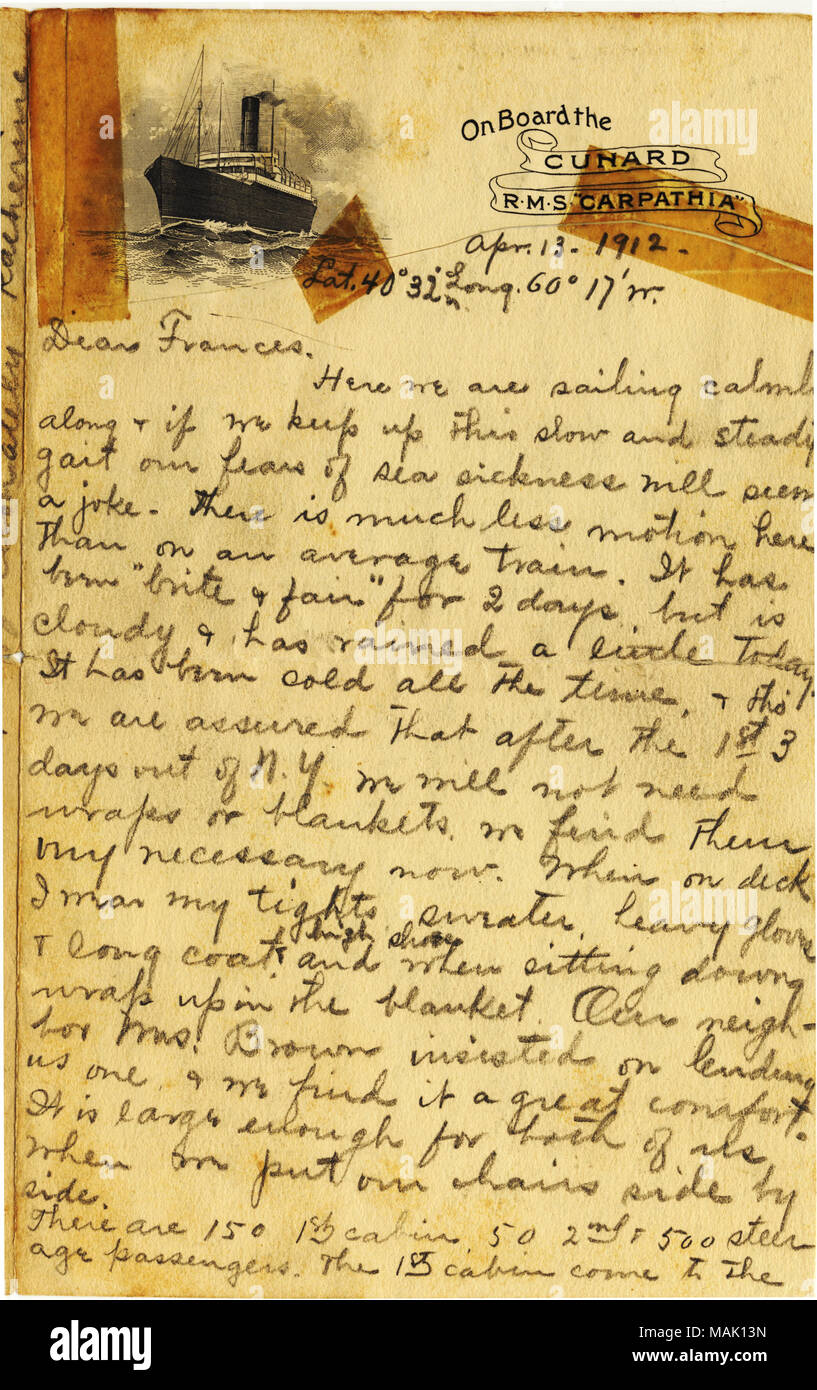 On Board the
CUNARD
R·M·S·"CARPATHIA"
Apr. 13 - 1912 -
Lat. 40° 32' n Long. 60° 17' W.
Dear Frances.
Here we are sailing calml
along & if we keep up this slow and steady
gait our fears of sea sickness will seem
a joke. There is much less motion here
than on an average train. It has
been "brite & fair" for 2 days, but is
cloudy & has rained a little today.
It has been cold all the time, & tho
we are assured that after the 1st 3
days out of N.Y. we will not need
wraps or blankets, we find them
very necessary now. When on deck
I wear my tights, sweater, heavy gloves
high shoes
& long coat, and when sitting down,
wrap up in the blanket. Our neigh-
bor Mrs. Brown insisted on lending
us one, & we find it a great comfort.
It is large enough for both of us
when we put our chairs side by
side.
There are 150 1st cabin, 50 2nd & 500 steer
age passengers. The 1st cabin come to the
Katherine
alamy
a
alamy
Image ID: MAK13N
www.alamy.com